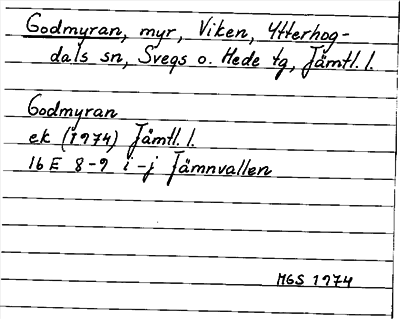 Godmyran, myr, Viken, Ytterhog-
dals sn, Svegs o. Hede tg, Jämtl. l.
Godmyran
ek (1974) Jämtl. l.
16 E 8-9 i-j Jämnvallen
MGS 1974